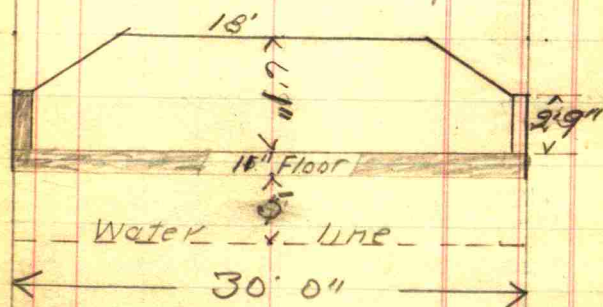 18'
6'9"
2'9"
11" Floor
5'
Water Line
30' 0"